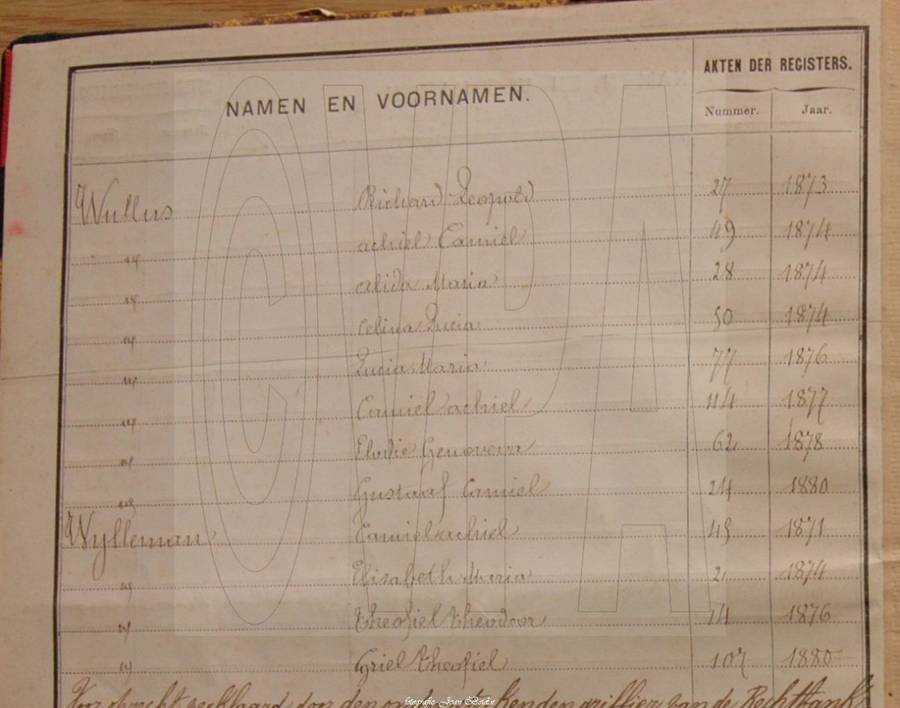 AKTEN DER REGISTERS.
NAMEN EN VOORNAMEN.
Nummer. Jaar.
Wullus Richard Leopold 27 1873
" achiel Camiel 49 1874
" Elida Maria 28 1874
" Celina Lucia 50 1874
" Lucia Maria 77 1876
" Camiel achiel 44 1877
" Elodie Genoveva 62 1878
" Gustaaf Camiel 24 1880
Wylleman Camiel achiel 45 1871
" Elisabeth Maria 2 1874
" theofiel theodoor 14 1876
" theofiel 107 1880
Voor oprecht verklaard door den griffier van de Rechtbank
fotografie Joan
CWPA